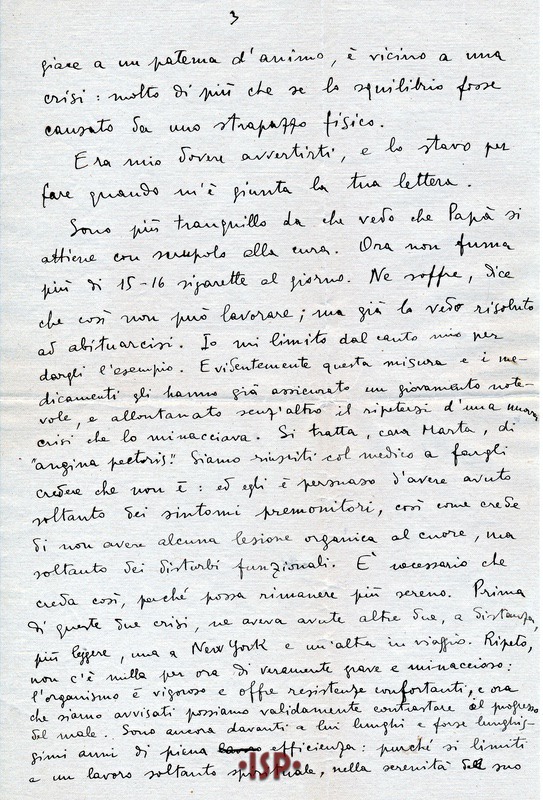 3
giace a un patema d'animo, è vicino a una
crisi: molto di più che se lo squilibrio fosse
causato da uno strapazzo fisico.
Era mio dovere avvertirti, e lo stavo per
fare quando m'è giunta la tua lettera.
Sono più tranquillo da che vedo che Papà si
attiene con scrupolo alla cura. Ora non fuma
più di 15-16 sigarette al giorno. Ne soffre, dice
che così non può lavorare; ma già lo vedo risoluto
ad abituarcisi. Io mi limito dal canto mio per
dargli l'esempio. Evidentemente questa misura e i me-
dicamenti gli hanno già assicurato un giovamento note-
vole, e allontanato senz'altro il ripetersi d'una nuova
crisi che lo minacciava. Si tratta, cara Marta, di
"angina pectoris". Siamo riusciti col medico a fargli
credere che non è: ed egli è persuaso d'avere avuto
soltanto dei sintomi premonitori, così come crede
di non avere alcuna lesione organica al cuore, ma
soltanto dei disturbi funzionali. E' necessario che
creda così, perché possa rimanere più sereno. Prima
di queste due crisi, ne aveva avute altre due, a distanza,
più leggere, una a New York e un'altra in viaggio. Ripeto,
non c'è nulla per ora di veramente grave e minaccioso:
l'organismo è vigoroso e offre resistenze confortanti, e ora
che siamo avvisati possiamo validamente contrastare al progresso
del male. Sono ancora davanti a lui lunghi e forse lunghis-
simi anni di piena efficienza: purché si limiti
a un lavoro soltanto spirituale, nella serenità del suo
•ISP•